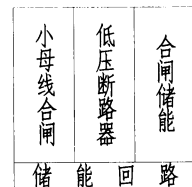 小母线合闸
低压断路器
合闸储能
储能回路